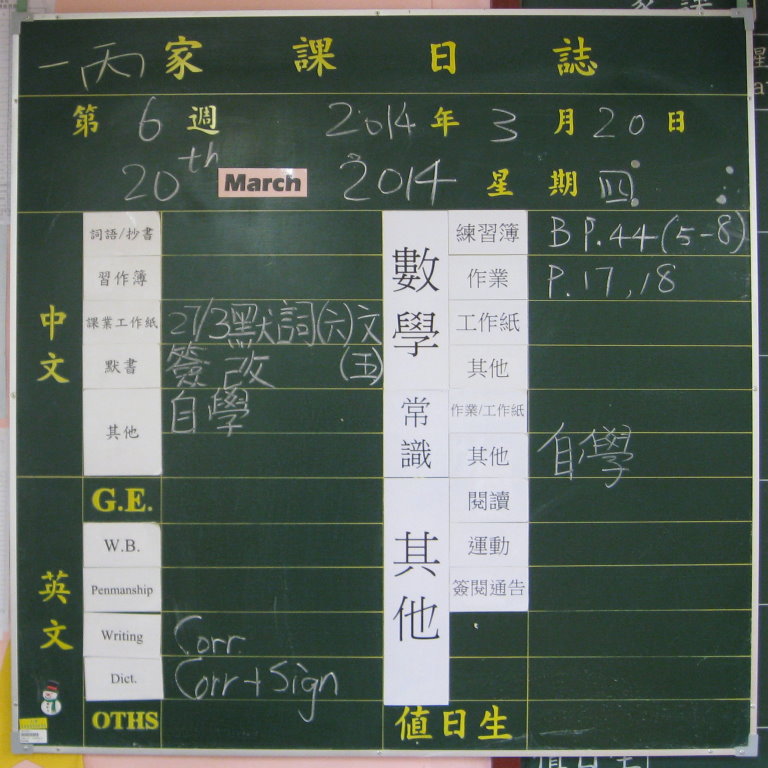 一丙 家課日誌
第 6 週 2014 年 3 月 20 日
20th March 2014 星期 四
中文
詞語/抄書
習作簿
課業工作紙 27/3默詞(六)文
默書 簽改 (五)
其他 自學
英文
G.E.
W.B.
Penmanship
Writing Corr.
Dict. Corr + Sign
OTHS
數學
練習簿 B P.44(5-8)
作業 P.17,18
工作紙
其他
常識
作業/工作紙
其他 自學
其他
閱讀
運動
簽閱通告
值日生